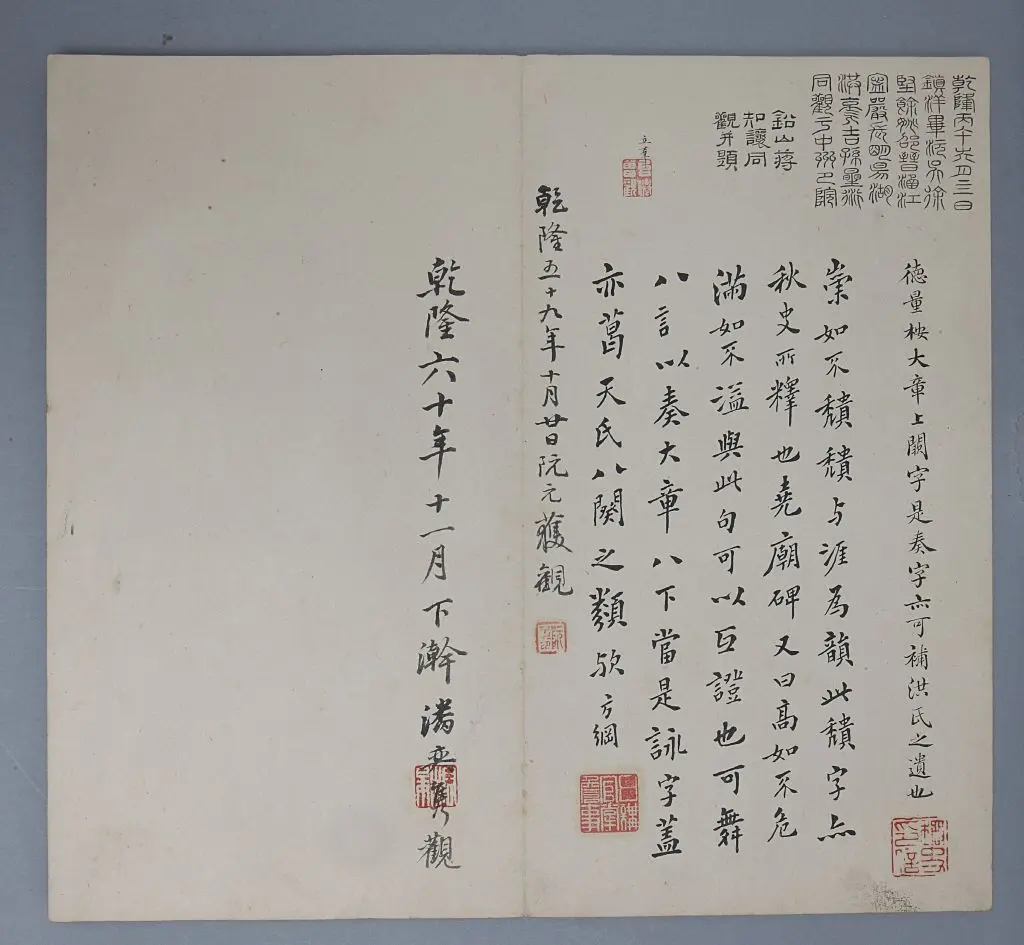 乾隆丙午六月三日
鎮洋畢沅吳徐
堅餘姚邵晉涵江
寧嚴長明陽湖
洪亮吉孫星衍
同觀于中撫之院
鉛山蔣
知讓同
觀并題
德量桉大章上闕字是奏字亦可補洪氏之遺也
崇如不穨穨与涯為韻此穨字亦
秋史所釋也堯廟碑又曰高如不危
滿如不溢與此句可以互證也可舞
八言以奏大章八下當是詠字蓋
亦葛天氏八闋之類歟方綱
乾隆五十九年十月廿日阮元獲觀
乾隆六十年十一月下澣潘奕雋觀